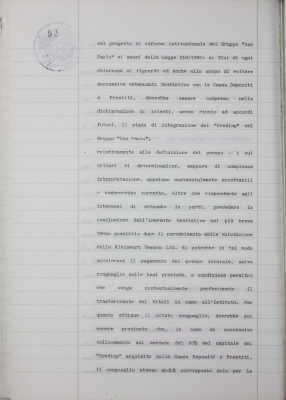 92
sul progetto di riforma istituzionale del Gruppo "San
Paolo" ai sensi della Legge 218/1990: ai fini di ogni
chiarezza al riguardo ed anche allo scopo di evitare
successive estenuanti trattative con la Cassa Depositi
e Prestiti, dovrebbe essere compreso nella
dichiarazione di intenti, senza rinvio ad accordi
futuri, il piano di integrazione del "Crediop" nel
Gruppo "San Paolo";
relativamente alla definizione del prezzo - i cui
criteri di determinazione, seppure di complessa
interpretazione, appaiono sostanzialmente accettabili
- sembrerebbe corretto, oltre che rispondente agli
interessi di entrambe le parti, prevedere la
conclusione dell'inerente trattativa nel più breve
tempo possibile dopo il pervenimento della valutazione
della Kleinwort Benson Ltd. Si potrebbe in tal modo
accelerare il pagamento del prezzo iniziale, salvo
conguaglio sulle basi previste, a condizione peraltro
che venga contestualmente perfezionato il
trasferimento dei titoli in capo all'Istituto. Per
quanto attiene il citato conguaglio, dovrebbe poi
essere precisato che, in caso di successivo
collocamento sul mercato del 20% del capitale del
"Crediop" acquisito dalla Cassa Depositi e Prestiti,
il conguaglio stesso andrà corrisposto solo per la